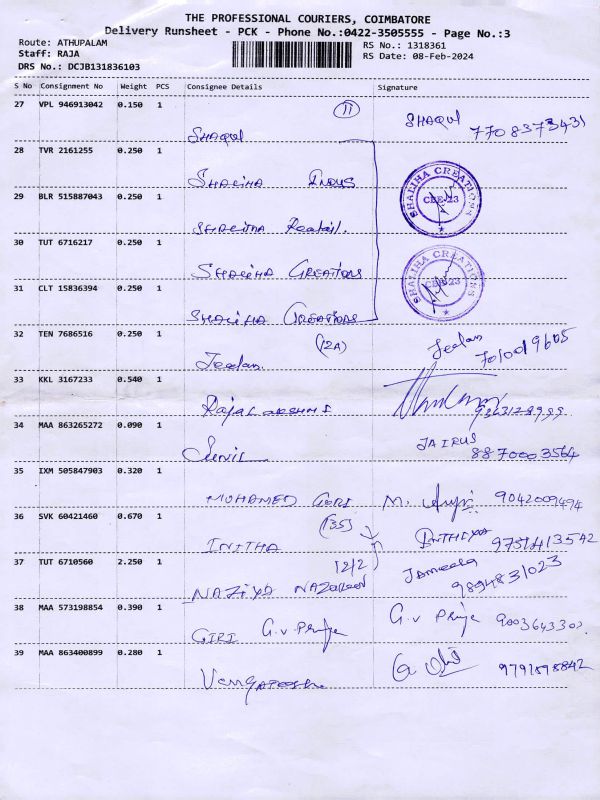 THE PROFESSIONAL COURIERS, COIMBATORE
Delivery Runsheet - PCK - Phone No.:0422-3505555 - Page No.:3
Route: ATHUPALAM
Staff: RAJA
DRS No.: DCJB131836103
RS No.: 1318361
RS Date: 08-Feb-2024
S No Consignment No Weight PCS Consignee Details Signature
27 VPL 946913042 0.150 1 11
SHAQUL SHAQUL 7708373431
28 TVR 2161255 0.250 1
SHALIHA INDUS
29 BLR 515887043 0.250 1
SHALIHA CREATIONS CBE-23
SHALIHA
30 TUT 6716217 0.250 1
SHALIHA CREATIONS
31 CLT 15836394 0.250 1
SHALIHA CREATIONS CBE-23
SHALIHA CREATIONS
32 TEN 7686516 0.250 1 (12A)
Jeelan Jeelan
33 KKL 3167233 0.540 1
RAJALAKSHMI
34 MAA 863265272 0.090 1
JAIRUS
8870003564
35 IXM 505847903 0.320 1
MOHAMED M. 9042009494
36 SVK 60421460 0.670 1 (135)
INITHA
37 TUT 6710560 2.250 1 12/2
NAZIYA NAZAREEN Jameela 9894831023
38 MAA 573198854 0.390 1
GIRI G.V Priya G.V Priya
39 MAA 863400899 0.280 1
9791898842